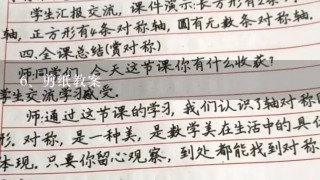 学生汇报交流,课件演示:长方形有2条
轴,正方形有4条对称轴,圆有无数条对称轴.
四.全课总结(赏对称)
师:同学们,今天这节课你有什么收获?
6、剪纸教案
学生交流学习感受.
师:通过这节课的学习,我们认识了轴对称图
形.对称,是一种美,是数学美在生活中的具体
体现.只要你留心观察,到处都能找到对称